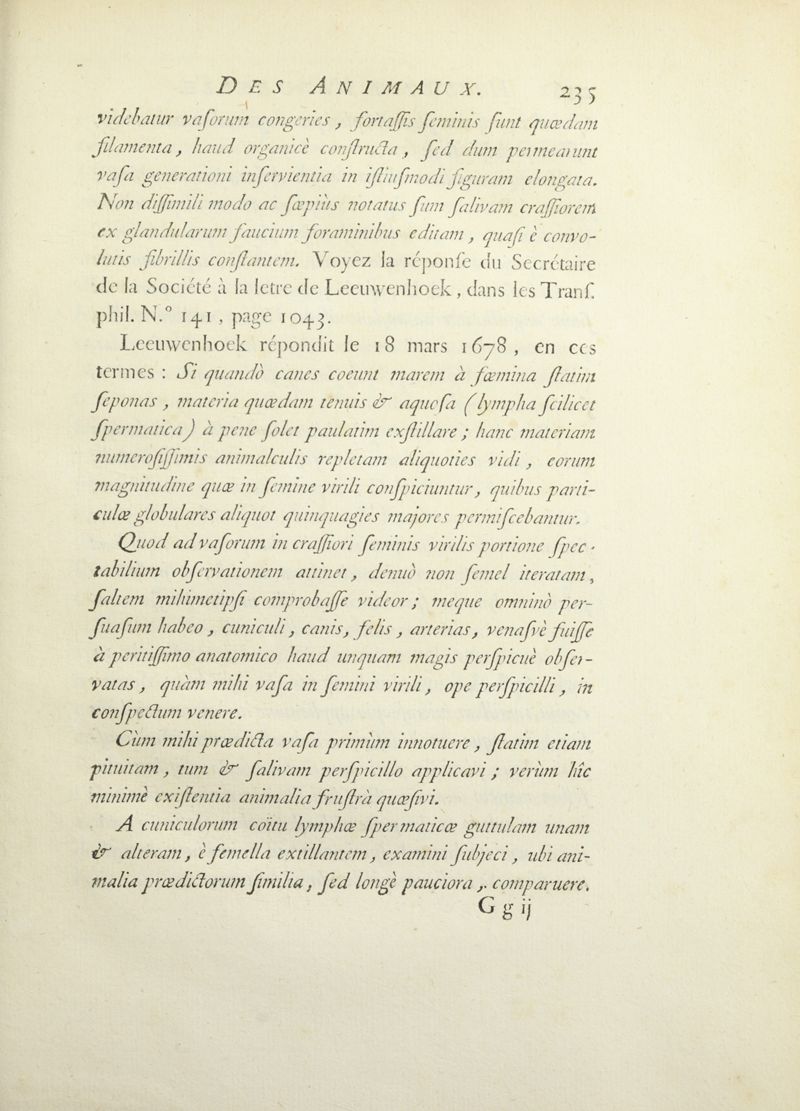 DES ANIMAUX. 235
videbatur vaſorum congeries, fortaſſis ſeminis ſunt quædam
filamenta, haud organicè conſtructa, ſed dum permearunt
vaſa generationi inſervientia in iſtiuſmodi figuram elongata.
Non diſſimili modo ac ſæpiùs notatus ſum ſalivam craſſiorem
ex glandularum faucium foraminibus editam, quaſi è convo-
lutis fibrillis conſtantem. Voyez la réponſe du Secrétaire
de la Société à la letre de Leeuwenhoek, dans les Tranſ.
phil. N.° 141, page 1043.
Leeuwenhoek répondit le 18 mars 1678, en ces
termes : Si quandò canes coeunt marem à fœmina ſtatim
ſeponas, materia quædam tenuis & aquoſa (lympha ſcilicet
ſpermatica) à pene ſolet paulatim exſtillare ; hanc materiam
numeroſiſſimis animalculis repletam aliquoties vidi, eorum
magnitudine quæ in ſemine virili conſpiciuntur, quibus parti-
culæ globulares aliquot quinquagies majores permiſcebantur.
Quod ad vaſorum in craſſiori ſeminis virilis portione ſpec-
tabilium obſervationem attinet, denuò non ſemel iteratam,
ſaltem mihimetipſi comprobaſſe videor ; meque omninò per-
ſuaſum habeo, cuniculi, canis, felis, arterias, venaſvè fuiſſe
à peritiſſimo anatomico haud unquam magis perſpicuè obſer-
vatas, quàm mihi vaſa in ſemini virili, ope perſpicilli, in
conſpectum venere.
Cùm mihi prædicta vaſa primùm innotuere, ſtatim etiam
pituitam, tum & ſalivam perſpicillo applicavi ; verùm hîc
minimè exiſtentia animalia fruſtrà quæſivi.
A cuniculorum coïtu lymphæ ſpermaticæ guttulam unam
& alteram, è femella extillantem, examini ſubjeci, ubi ani-
malia prædictorum ſimilia, ſed longè pauciora, comparuere.
G g ij